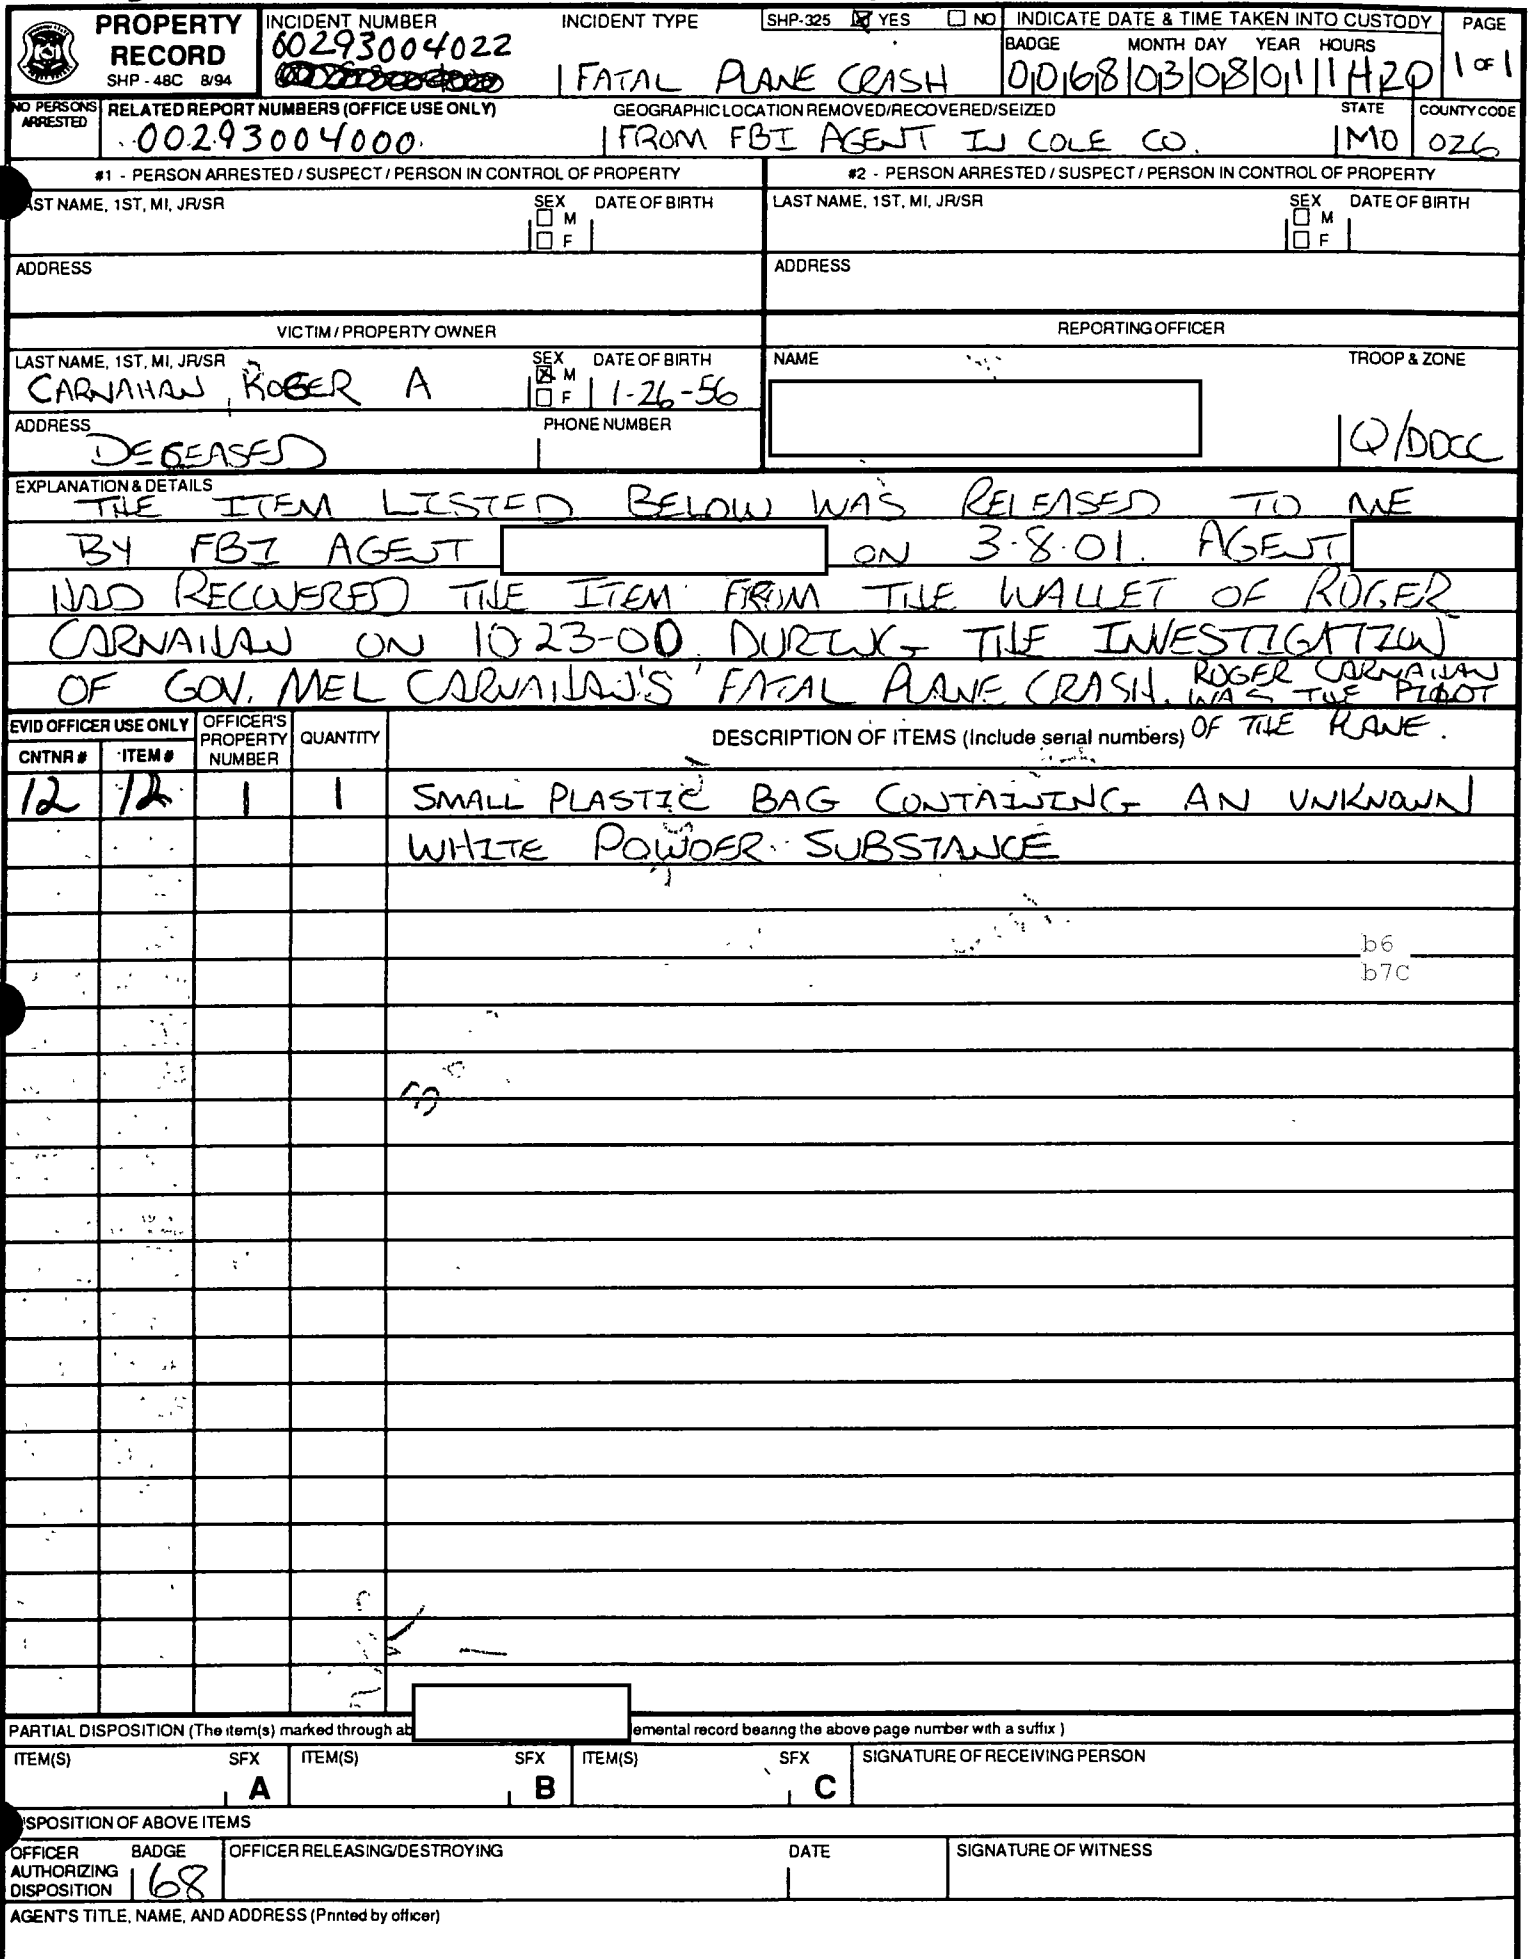 PROPERTY RECORD
SHP - 48C 8/94
INCIDENT NUMBER
00293004022
INCIDENT TYPE
FATAL PLANE CRASH
SHP-325 YES NO
INDICATE DATE & TIME TAKEN INTO CUSTODY
BADGE MONTH DAY YEAR HOURS
0068 03 08 01 1420
PAGE
1 OF 1
NO PERSONS ARRESTED
RELATED REPORT NUMBERS (OFFICE USE ONLY)
00293004000
GEOGRAPHIC LOCATION REMOVED/RECOVERED/SEIZED
FROM FBI AGENT IN COLE CO.
STATE
MO
COUNTY CODE
026
#1 - PERSON ARRESTED / SUSPECT / PERSON IN CONTROL OF PROPERTY
#2 - PERSON ARRESTED / SUSPECT / PERSON IN CONTROL OF PROPERTY
AST NAME, 1ST, MI, JR/SR SEX M F DATE OF BIRTH
LAST NAME, 1ST, MI, JR/SR SEX M F DATE OF BIRTH
ADDRESS
ADDRESS
VICTIM / PROPERTY OWNER
REPORTING OFFICER
LAST NAME, 1ST, MI, JR/SR SEX M F DATE OF BIRTH
CARNAHAN, ROGER A 1-26-56
NAME TROOP & ZONE
Q/DDCC
ADDRESS PHONE NUMBER
DECEASED
EXPLANATION & DETAILS
THE ITEM LISTED BELOW WAS RELEASED TO ME
BY FBI AGENT ON 3-8-01. AGENT
HAD RECOVERED THE ITEM FROM THE WALLET OF ROGER
CARNAHAN ON 10-23-00 DURING THE INVESTIGATION
OF GOV. MEL CARNAHAN'S FATAL PLANE CRASH. ROGER CARNAHAN
WAS THE PILOT
OF THE PLANE.
EVID OFFICER USE ONLY
CNTNR # ITEM #
OFFICER'S PROPERTY NUMBER
QUANTITY
DESCRIPTION OF ITEMS (Include serial numbers)
12 12 1 1 SMALL PLASTIC BAG CONTAINING AN UNKNOWN
WHITE POWDER SUBSTANCE
b6
b7C
PARTIAL DISPOSITION (The item(s) marked through ab emental record bearing the above page number with a suffix )
ITEM(S) SFX A ITEM(S) SFX B ITEM(S) SFX C SIGNATURE OF RECEIVING PERSON
ISPOSITION OF ABOVE ITEMS
OFFICER AUTHORIZING DISPOSITION
BADGE
68
OFFICER RELEASING/DESTROYING
DATE
SIGNATURE OF WITNESS
AGENT'S TITLE, NAME, AND ADDRESS (Printed by officer)